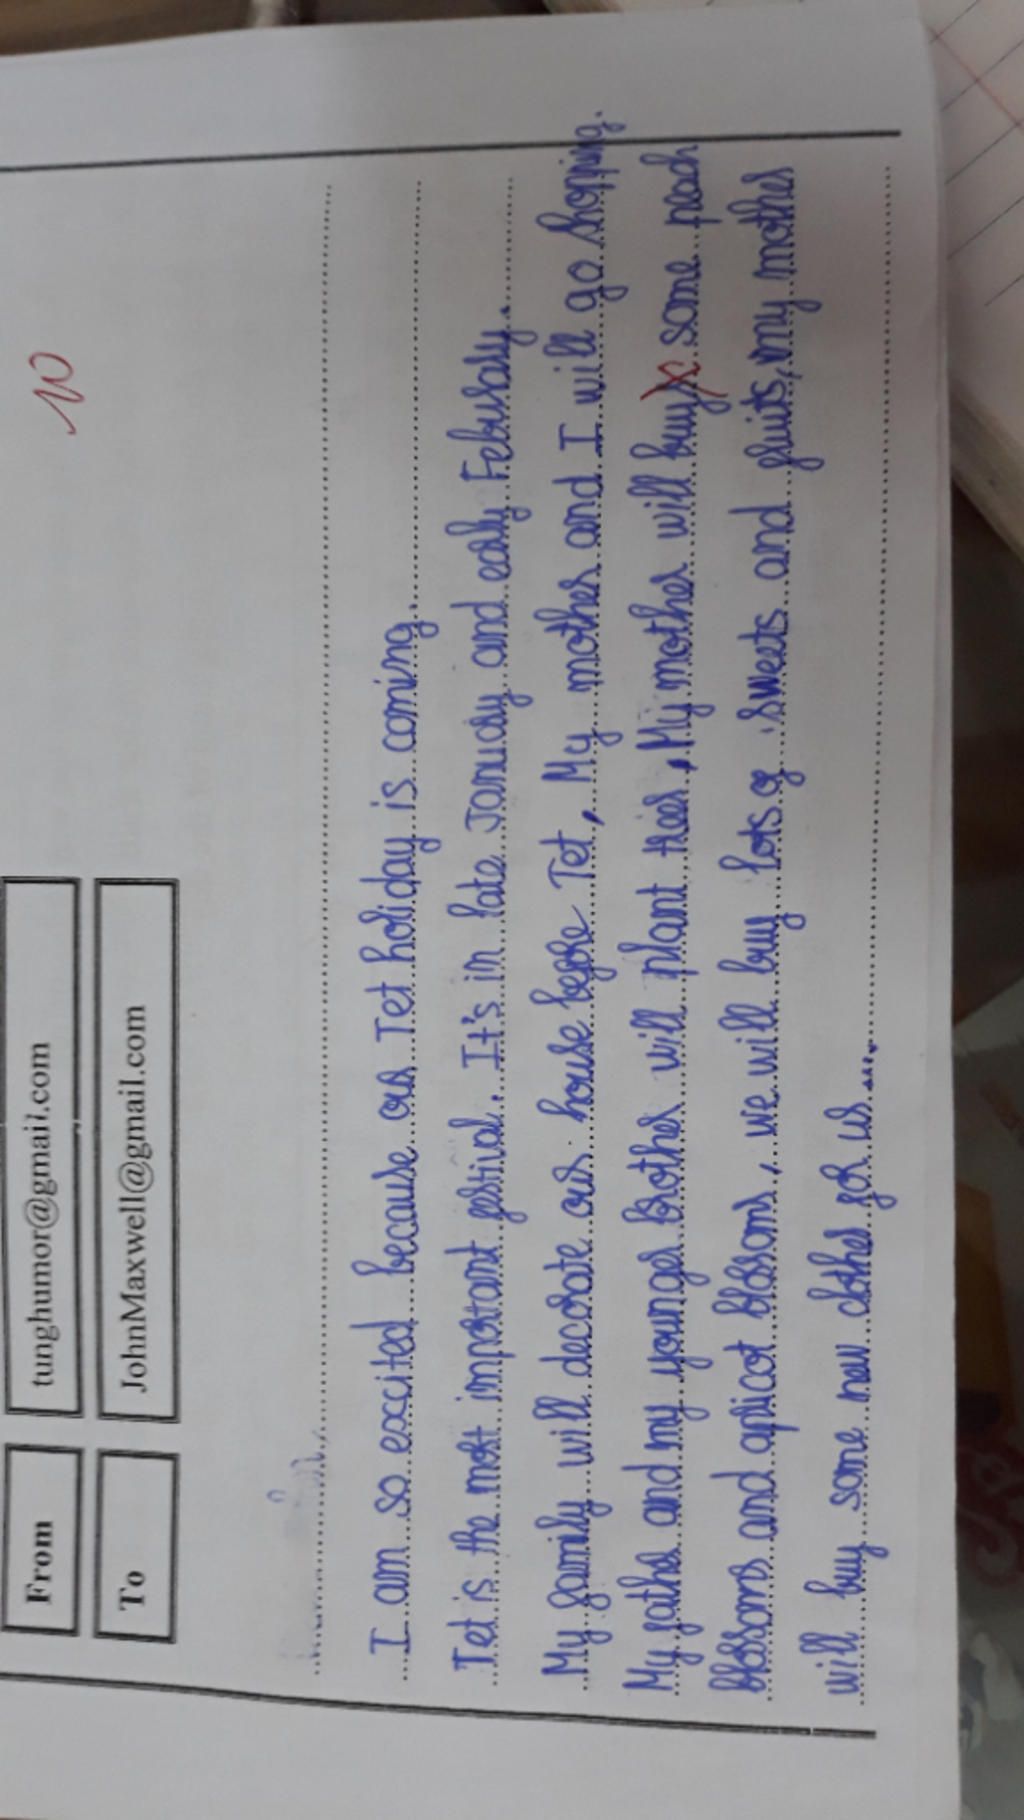 From tunghumor@gmail.com
To JohnMaxwell@gmail.com
I am so excited because our Tet holiday is coming.
Tet is the most important festival. It's in late January and early Febuary.
My family will decorate our house before Tet. My mother and I will go shopping.
My father and my younger brother will plant trees. My mother will buy some peach
blossoms and apricot blossoms, we will buy lots of sweets and fruits, my mother
will buy some new clothes for us....